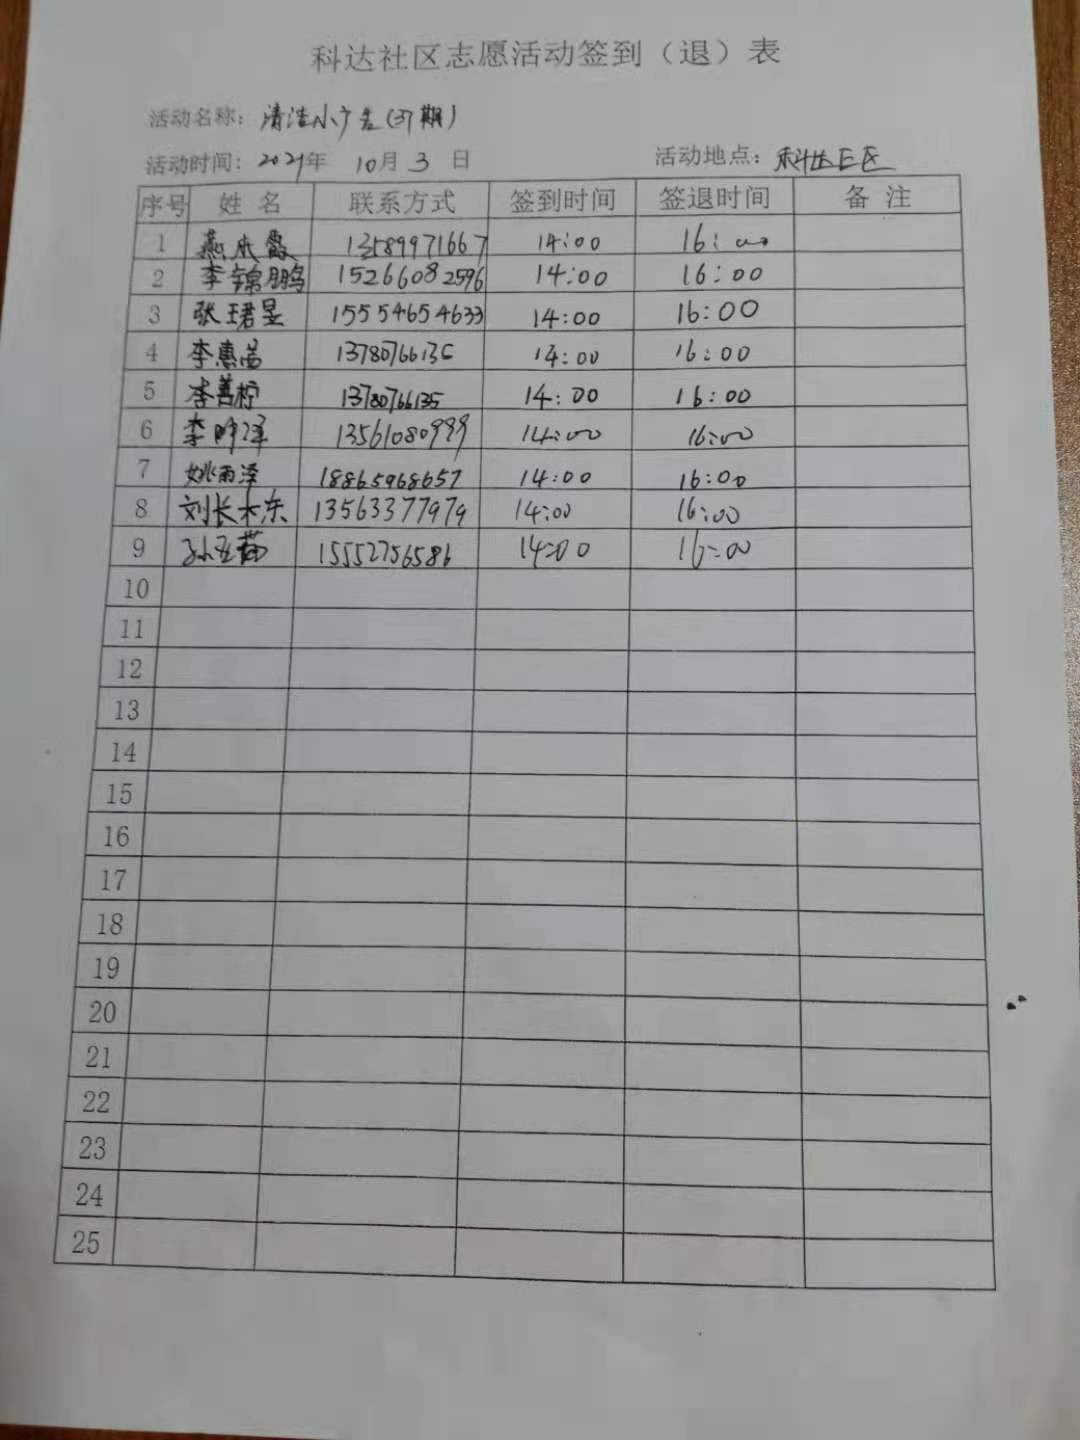 科达社区志愿活动签到（退）表
活动名称：清洁小广告(37期)
活动时间：2021年 10月 3 日 活动地点：科达E区
序号 姓 名 联系方式 签到时间 签退时间 备 注
1 燕 霞 13589971667 14:00 16:00
2 李锦鹏 15266082596 14:00 16:00
3 张珺昱 15554654633 14:00 16:00
4 李惠 14:00 16:00
5 李善柠 13780766135 14:00 16:00
6 李 泽 13561080999 14:00 16:00
7 姚雨泽 18865968657 14:00 16:00
8 刘长木东 13563377979 14:00 16:00
9 孙 茹 15552756586 14:00 16:00
10
11
12
13
14
15
16
17
18
19
20
21
22
23
24
25